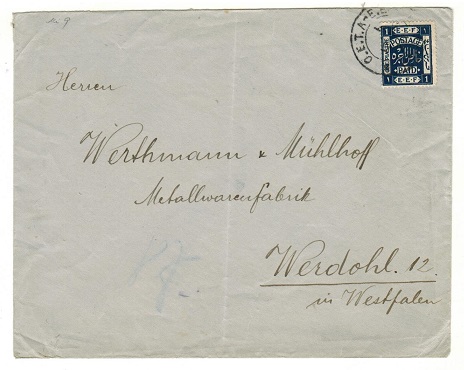 O.E.T.A.
E.E.F
POSTAGE
PAID
1 E.E.F 1
Herren
Werthmann & Mühlhoff
Metallwarenfabrik
Werdohl. 12.
in Westfalen